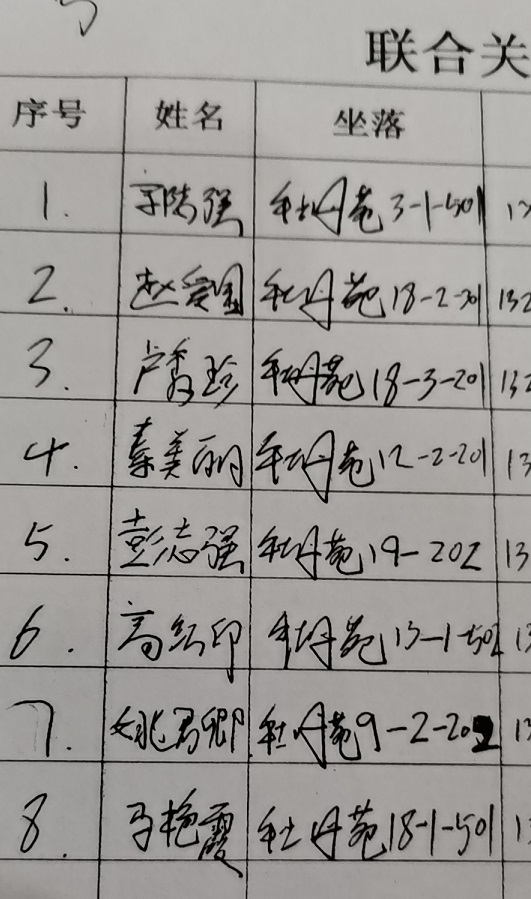 联合关
序号 姓名 坐落
1. 陆强 牡丹苑3-1-501 13
2. 赵爱国 牡丹苑18-2-301 132
3. 卢秀珍 牡丹苑18-3-201 132
4. 秦美丽 牡丹苑12-2-201 13
5. 彭志强 牡丹苑19-202 13
6. 高红印 牡丹苑13-1-502 13
7. 姚君卿 牡丹苑9-2-202 13
8. 马艳霞 牡丹苑18-1-501 1